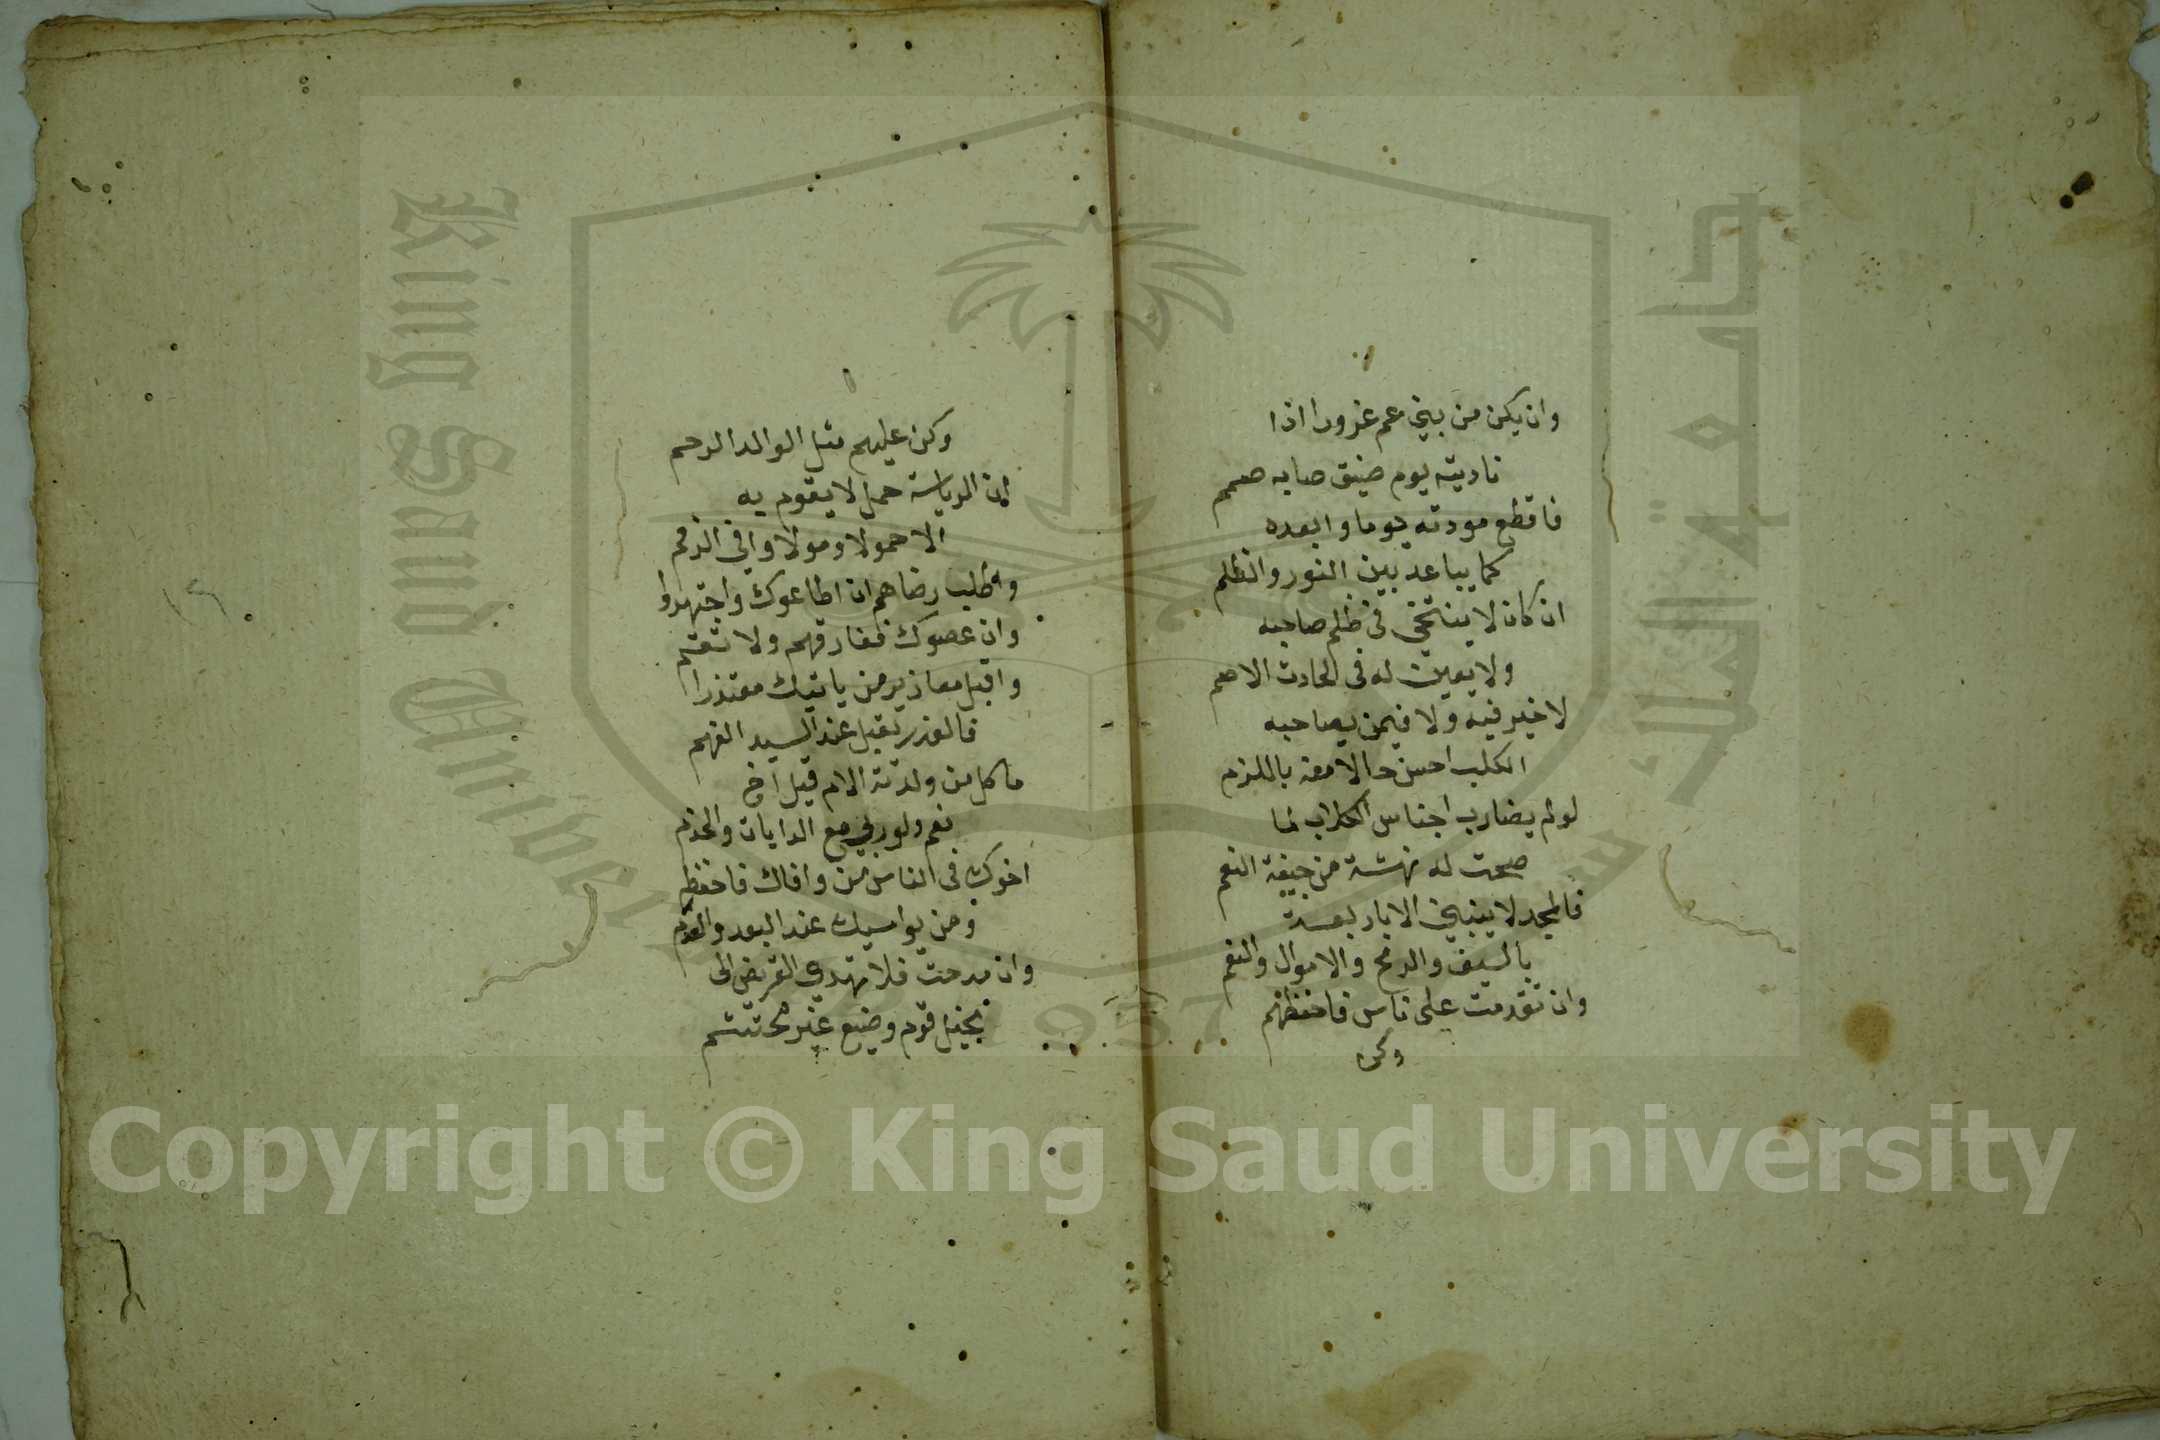 وان يكن من بني عم غرورا اذا
ناديته يوم ضيق صابه صمم
فاقطع مودته يوما وابعده
كما يباعد بين النور والظلم
ان كان لا ينتخي في ظلم صاحبه
ولا يعين له في الحادث الاصم
لا خير فيه ولا فيمن يصاحبه
الكلب احسن حالا معه باللزم
لو لم يضارب اجناس الكلاب لما
صحت له نهشة من جيفة النعم
فالمجد لا ينبني الا باربعة
بالسيف والرمح والاموال والنعم
وان تقدمت على ناس فاحفظهم
وكن
وكن عليهم مثل الوالد الرحم
ان الرياسة حمل لا يقوم به
الا حمولا ومولا وافي الذمم
واطلب رضاهم ان اطاعوك واجتهدوا
وان عصوك ففارقهم ولا تقم
واقبل معاذير من ياتيك معتذرا
فالعذر يقبل عند السيد الفهم
ما كل من ولدته الام قيل اخ
نعم ولو ربي مع الدايات والخدم
اخوك في الناس من وافاك فاحفظه
ومن يواسيك عند البعد والعدم
وان مدحت فلا تهدي القريض الى
بخيل قوم وضيع غير محتشم
Copyright © King Saud University
King Saud University
جامعة الملك سعود
1957